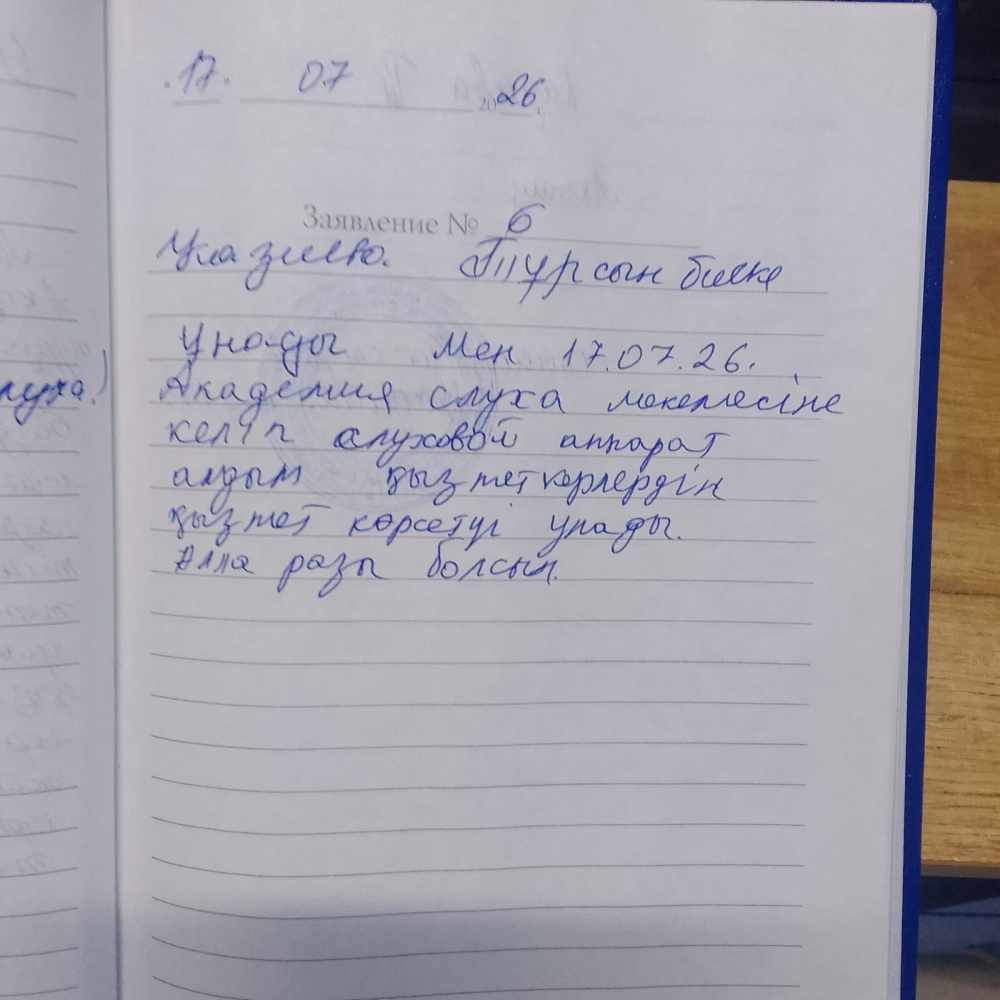 17. 07 2026.
Заявление № 6
Турсын бике
луха.)
Унады Мен 17.07.26.
Академия слуха мекемесіне
келіп слуховой аппарат
алдым қызметкерлердін
қызмет көрсетуі унады.
Алла разы болсын.